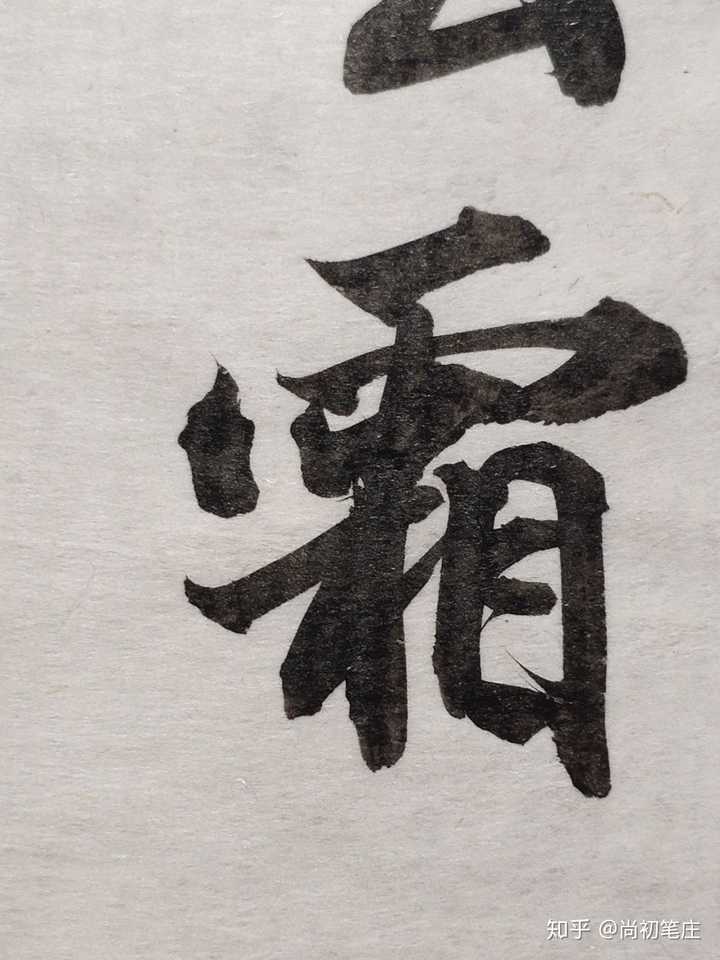 霜
知乎 @尚初笔庄